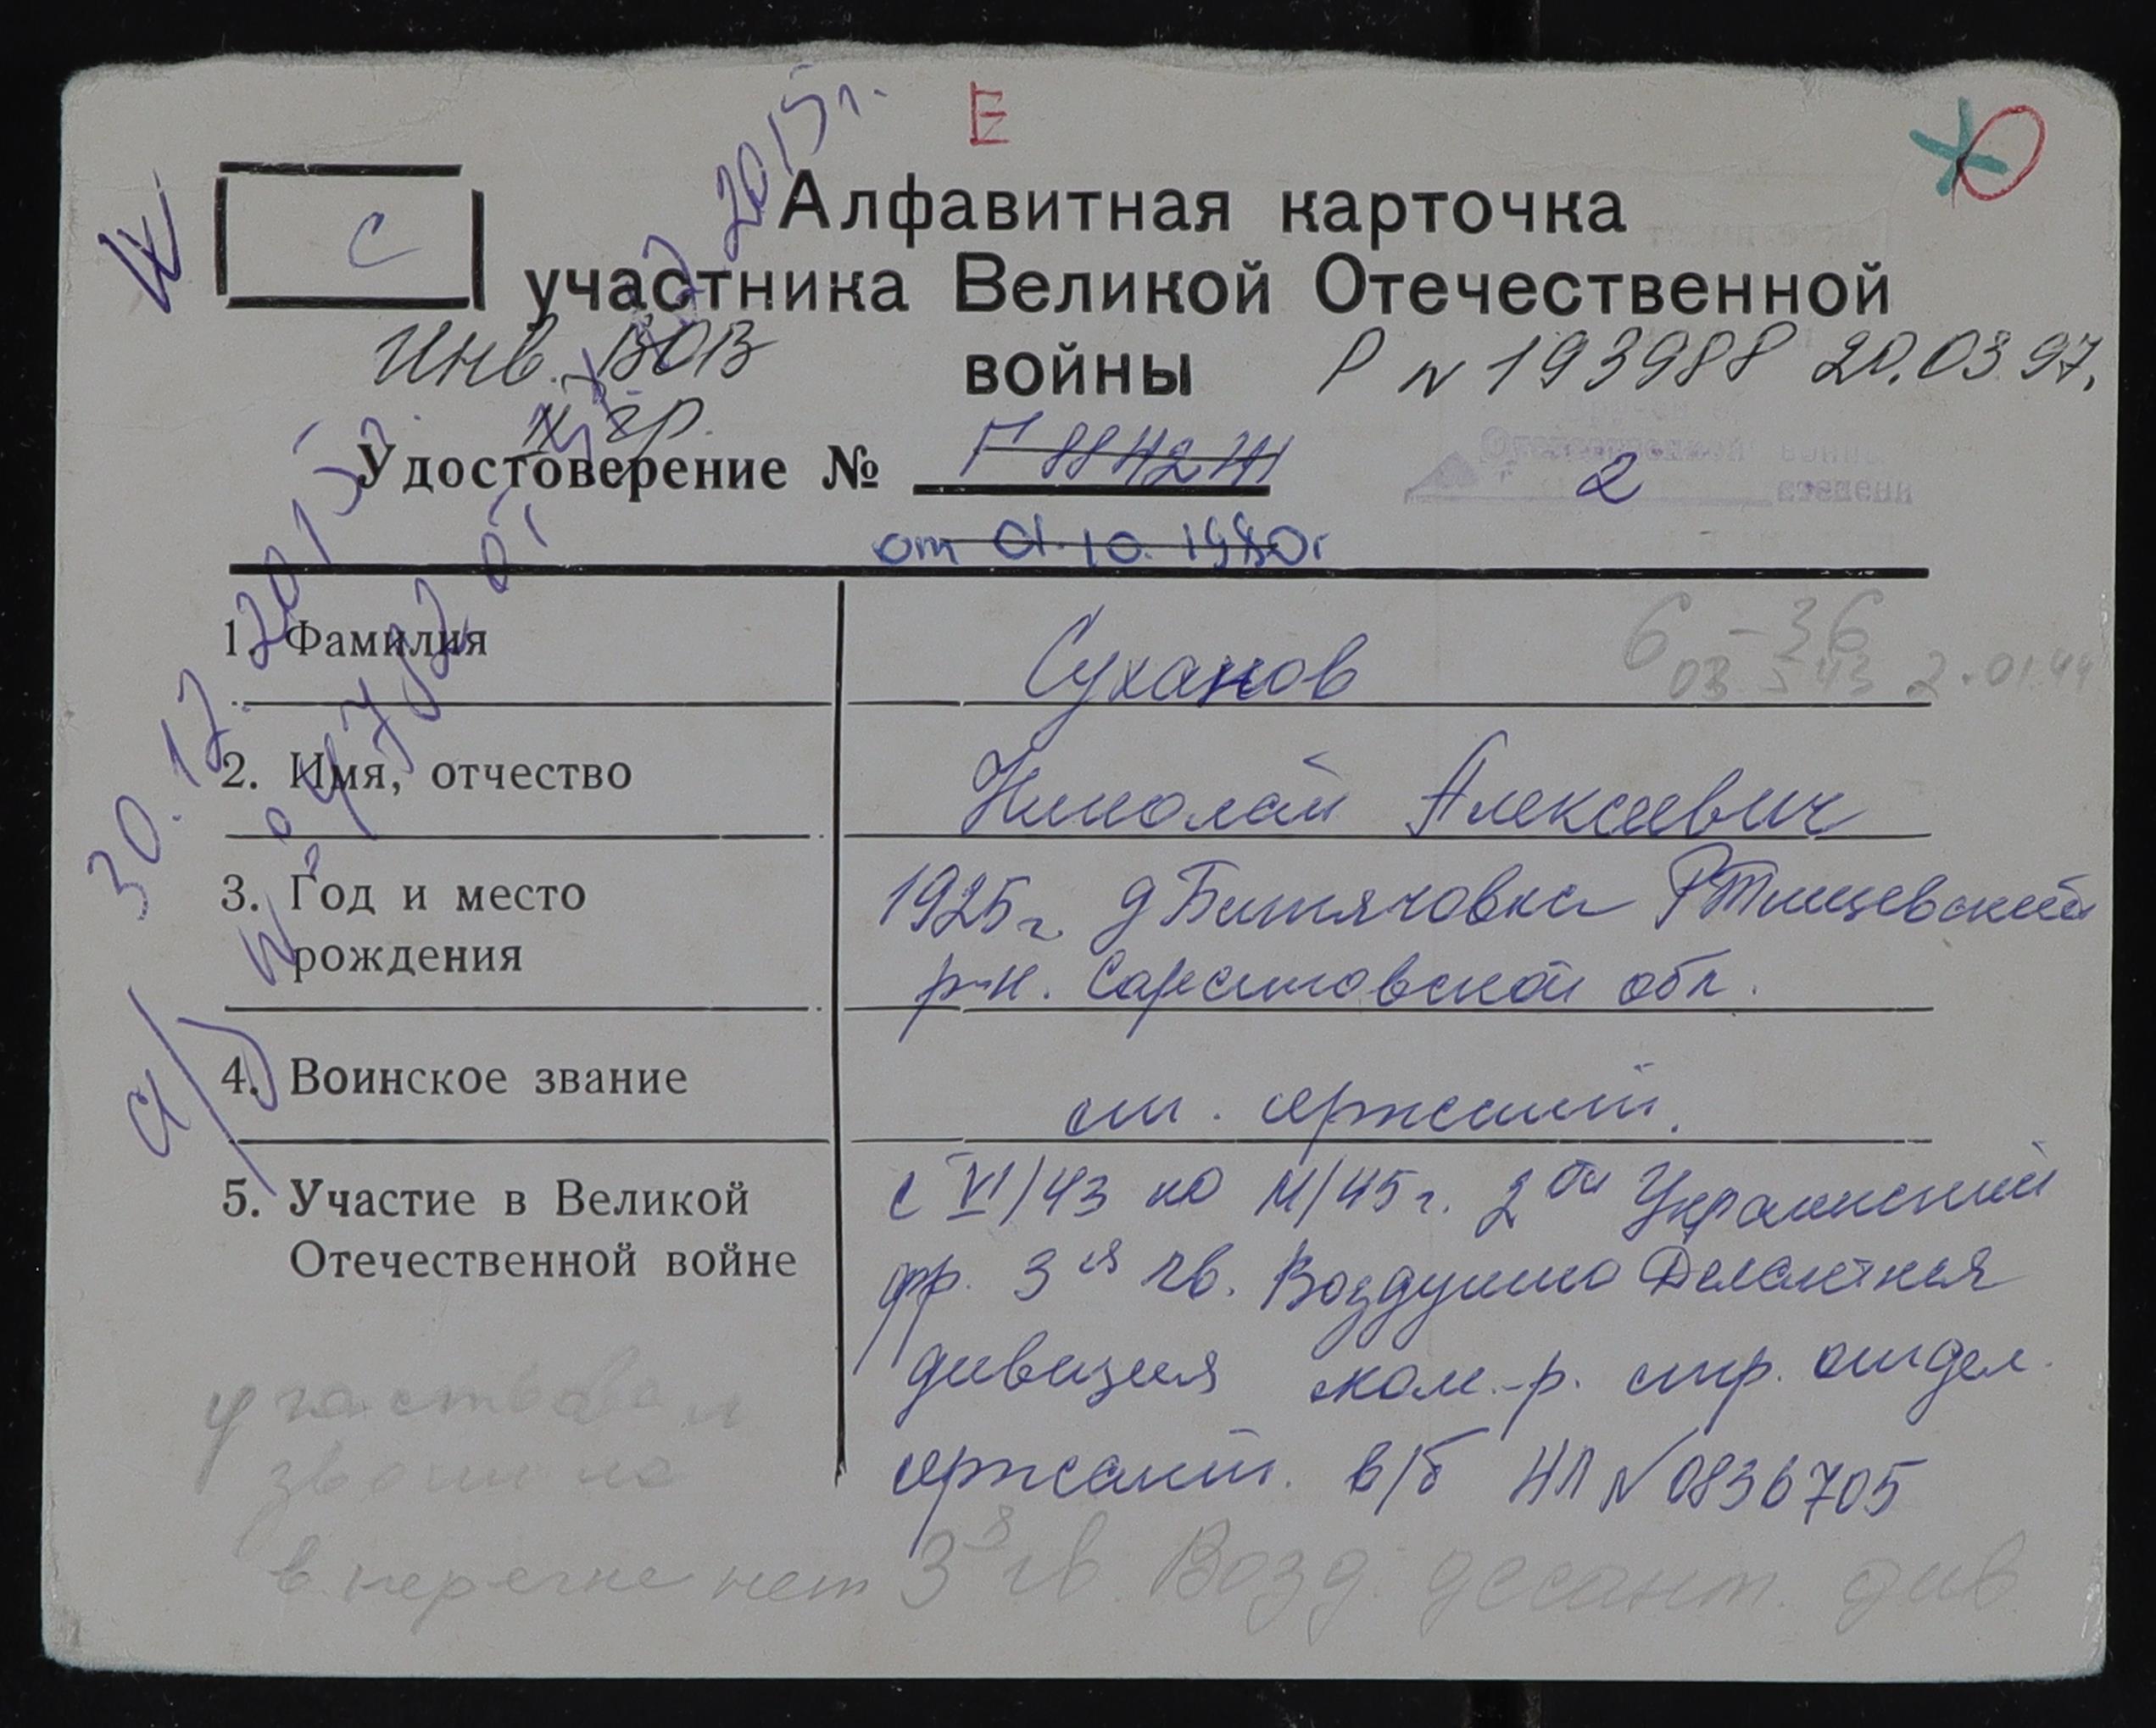 Е
С
Алфавитная карточка
участника Великой Отечественной
войны
Инв. ВОВ
II гр.
Р N 193988 20.03.97.
Удостоверение №
2
от 01.10.1980г
1. Фамилия
Суханов
6-36
2. Имя, отчество
Николай Алексеевич
3. Год и место
рождения
1925г. д Битяговка Ртищевский
р-н. Саратовской обл.
4. Воинское звание
ст. сержант.
5. Участие в Великой
Отечественной войне
с VI/43 по 11/45г. 2ой Украинский
фр. 3ия гв. Воздушно Десантная
дивизия ком-р. стр. отдел.
сержант. в/б НЛ N 0836705
участвовал
в перечне нет 3я гв. Возд. десант. див
30.12.2015